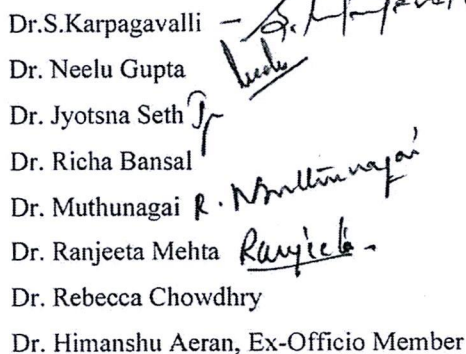 Dr.S.Karpagavalli –
Dr. Neelu Gupta
Dr. Jyotsna Seth
Dr. Richa Bansal
Dr. Muthunagai R. Muthunagai
Dr. Ranjeeta Mehta Ranjeeta
Dr. Rebecca Chowdhry
Dr. Himanshu Aeran, Ex-Officio Member